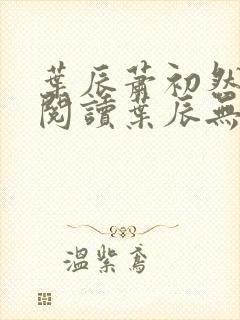 葉辰蕭初然
閱讀葉辰無
溫紫鳶